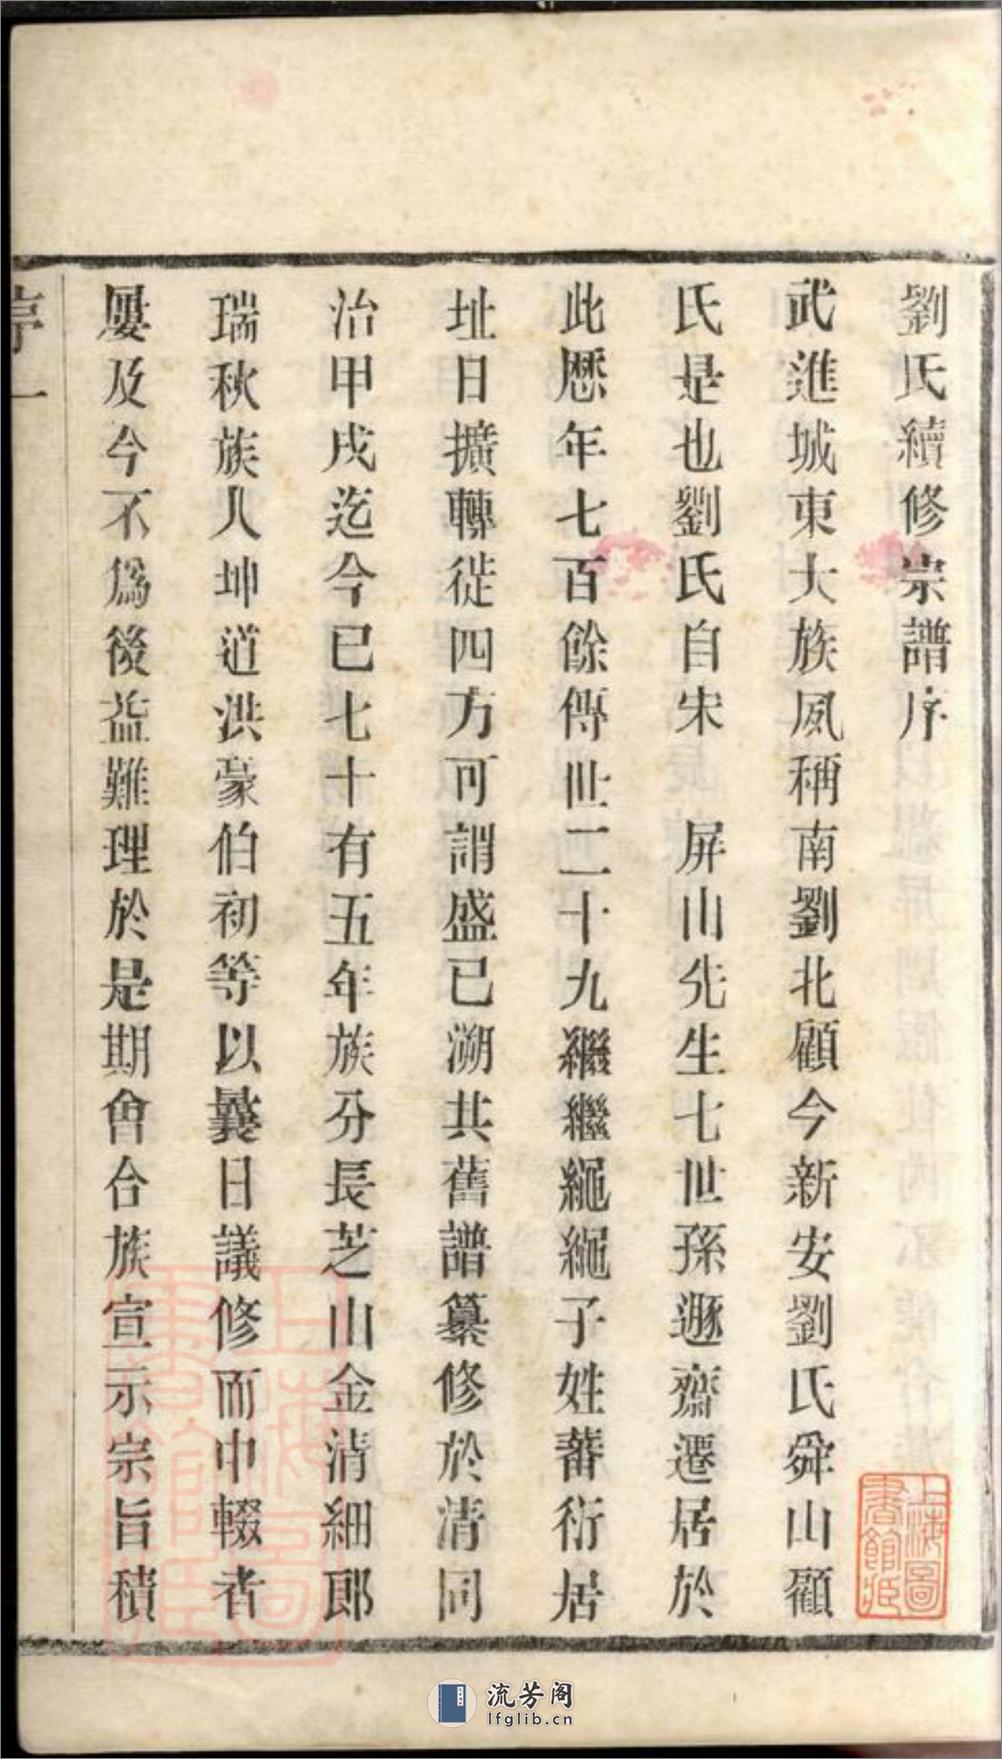 劉氏續修宗譜序
武進城東大族夙稱南劉北顧今新安劉氏舜山顧
氏是也劉氏自宋　屏山先生七世孫遯齋遷居於
此歷年七百餘傳世二十九繼繼繩繩子姓蕃衍居
址日擴轉徙四方可謂盛已溯其舊譜纂修於清同
治甲戌迄今已七十有五年族分長芝山金清細郎
瑞秋族人坤道洪豪伯初等以曩日議修而中輟者
屢及今不爲後益難理於是期會合族宣示宗旨積
序 一
上海圖書館藏
上海圖書館藏
流芳阁
lfglib.cn